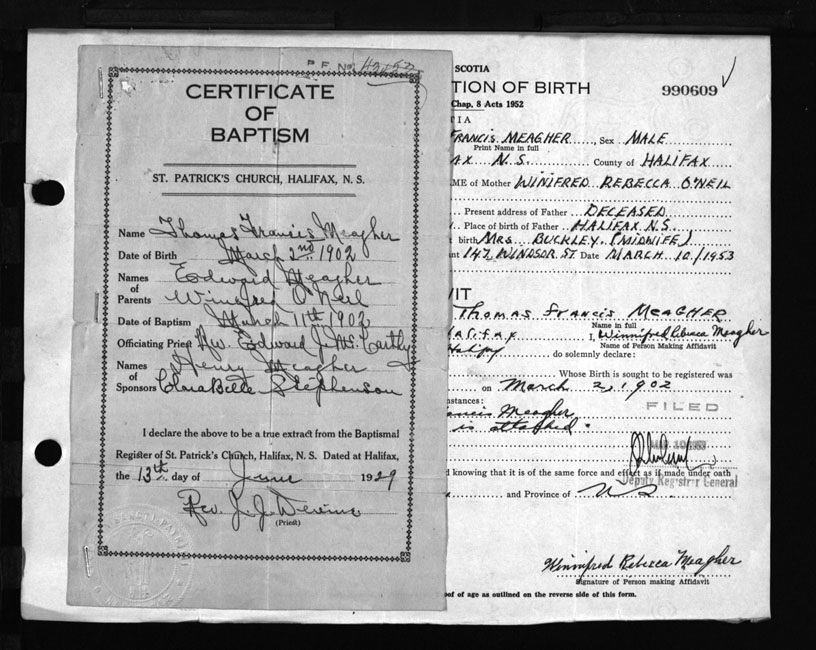 P. F. No.
CERTIFICATE
OF
BAPTISM
ST. PATRICK'S CHURCH, HALIFAX, N. S.
Name Thomas Francis Meagher
Date of Birth March 2nd 1902
Names of Parents Edward Meagher
Winifred O'Neil
Date of Baptism March 11th 1902
Officiating Priest Rev. Edward J. McCarthy
Names of Sponsors Henry Meagher
Clara Belle Stephenson
I declare the above to be a true extract from the Baptismal
Register of St. Patrick's Church, Halifax, N. S. Dated at Halifax,
the 13th day of June 1929
Rev. J. J.
(Priest)
SCOTIA
TION OF BIRTH
990609
Chap. 8 Acts 1952
TIA
FRANCIS MEAGHER, Sex MALE
Print Name in full
AX N.S. County of HALIFAX
ME of Mother WINIFRED REBECCA O'NEIL
Present address of Father DECEASED
Place of birth of Father HALIFAX N.S.
birth MRS BUCKLEY (MIDWIFE)
nt 147 WINDSOR ST. Date MARCH 10/1953
VIT
Thomas Francis MEAGHER
Name in full
Halifax I, Winnifred Rebecca Meagher
Name of Person Making Affidavit
do solemnly declare:
Whose Birth is sought to be registered was
on March 2, 1902
nstances:
FILED
ancis Meagher
is attached.
d knowing that it is of the same force and effect as if made under oath
Deputy Registrar General
and Province of N.S.
Winnifred Rebecca Meagher
Signature of Person making Affidavit
oof of age as outlined on the reverse side of this form.